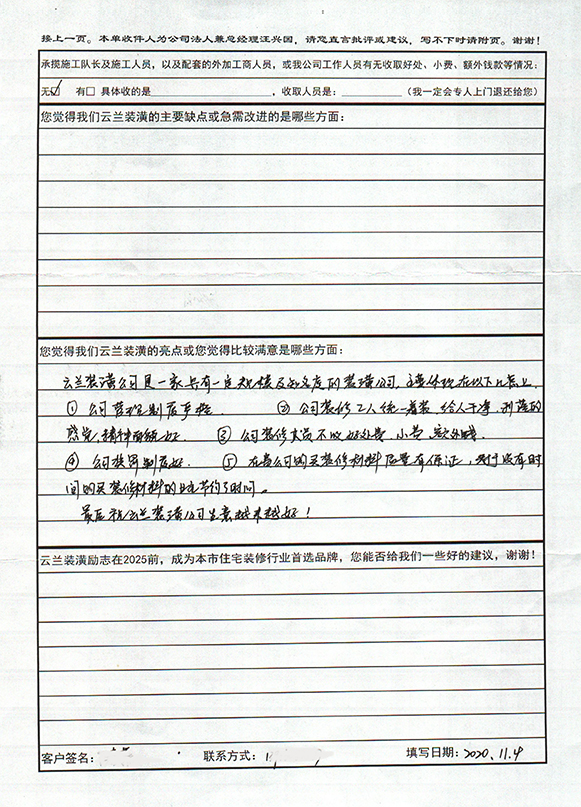 接上一页。本单收件人为公司法人兼总经理汪兴国，请您直言批评或建议，写不下时请附页。谢谢！
承揽施工队长及施工人员，以及配套的外加工商人员，或我公司工作人员有无收取好处、小费、额外钱款等情况：
无☑ 有□ 具体收的是 ，收取人员是： （我一定会专人上门退还给您）
您觉得我们云兰装潢的主要缺点或急需改进的是哪些方面：
您觉得我们云兰装潢的亮点或您觉得比较满意是哪些方面：
云兰装潢公司是一家具有一定规模及知名度的装潢公司，主要体现在以下几点上
① 公司管理制度 ② 公司装修工人统一着装，给人干净、利落的
感觉，精神面貌好． ③ 公司装修人员不收好处费、小费、额外钱．
④ 公司奖罚制度好． ⑤ 在贵公司购买装修材料质量有保证，对于没有时
间购买装修材料的业主节约了时间。
最后祝云兰装潢公司生意越来越好！
云兰装潢励志在2025前，成为本市住宅装修行业首选品牌，您能否给我们一些好的建议，谢谢！
客户签名： 联系方式：1 填写日期：2020.11.4